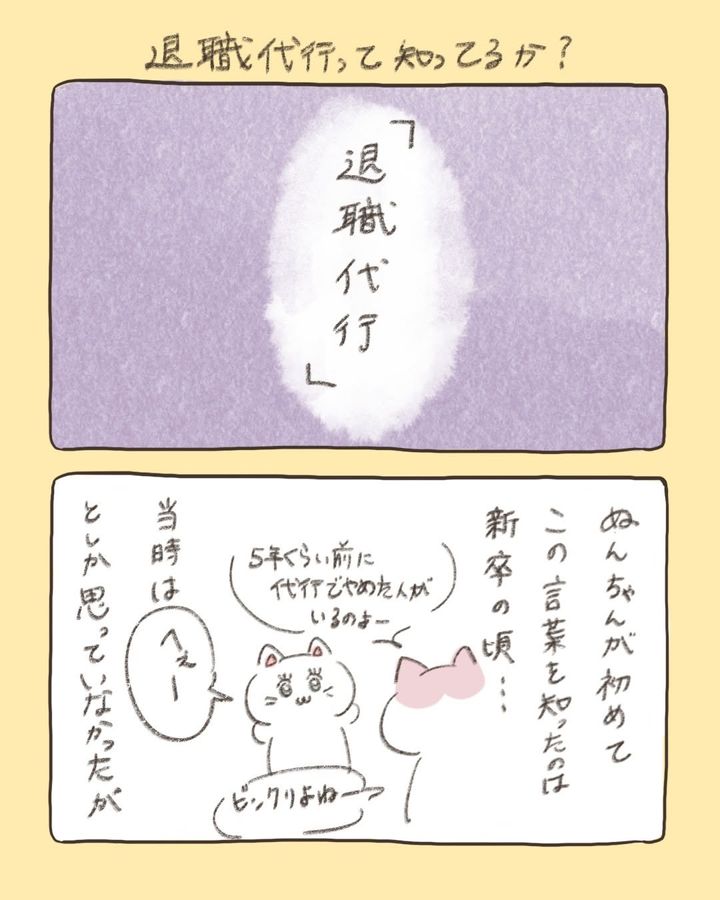 退職代行って知ってるか？
「退職代行」
ぬんちゃんが初めて
この言葉を知ったのは
新卒の頃…
5年くらい前に
代行でやめた人が
いるのよー
ビックリよねー
へぇー
当時は
としか思っていなかったが